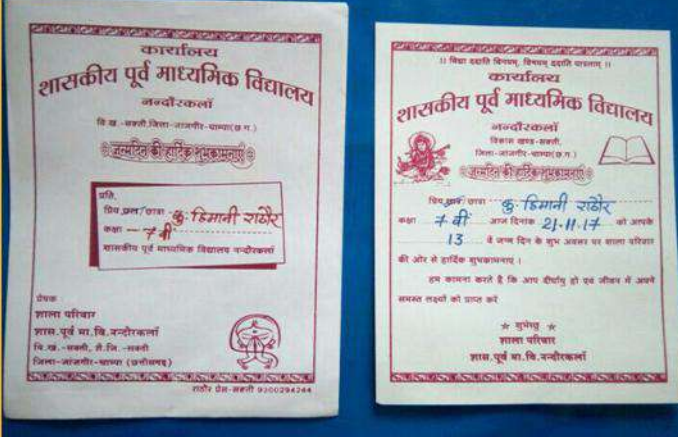 कार्यालय
शासकीय पूर्व माध्यमिक विद्यालय
नन्दौरकलाँ
वि.ख.-सक्ती,जिला-जांजगीर-चाम्पा(छ.ग.)
जन्मदिन की हार्दिक शुभकामनाएं
प्रति,
प्रिय छात्र/छात्रा कु. हिमानी राठौर
कक्षा 7 वीं
शासकीय पूर्व माध्यमिक विद्यालय नन्दौरकलाँ
प्रेषक
शाला परिवार
शास.पूर्व मा.वि.नन्दौरकलाँ
वि.खं.-सक्ती, शै.जि.-सक्ती
जिला-जांजगीर-चाम्पा (छत्तीसगढ़)
राठौर प्रेस-सक्ती 9300294244
।। विद्या ददाति विनयम्, विनयम् ददाति पात्रताम् ।।
कार्यालय
शासकीय पूर्व माध्यमिक विद्यालय
नन्दौरकलाँ
विकास खण्ड-सक्ती,
जिला-जांजगीर-चाम्पा(छ.ग.)
जन्मदिन की हार्दिक शुभकामनाएं
प्रिय छात्र/ छात्रा कु. हिमानी राठौर
कक्षा 7 वीं आज दिनांक 21.11.17 को आपके
13 वें जन्म दिन के शुभ अवसर पर शाला परिवार
की ओर से हार्दिक शुभकामनाएं ।
हम कामना करते है कि आप दीर्घायु हो एवं जीवन में अपने
समस्त लक्ष्यों को प्राप्त करें
शुभेच्छु
शाला परिवार
शास.पूर्व मा.वि.नन्दौरकलाँ